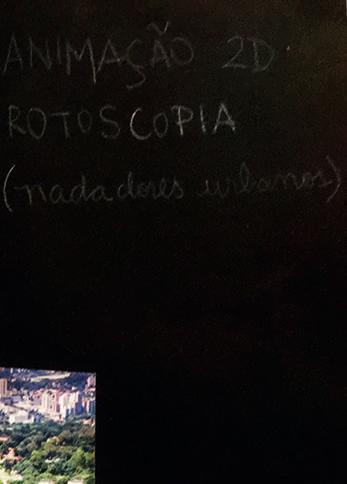 ANIMAÇÃO 2D
ROTOSCOPIA
(nadadores urbanos)